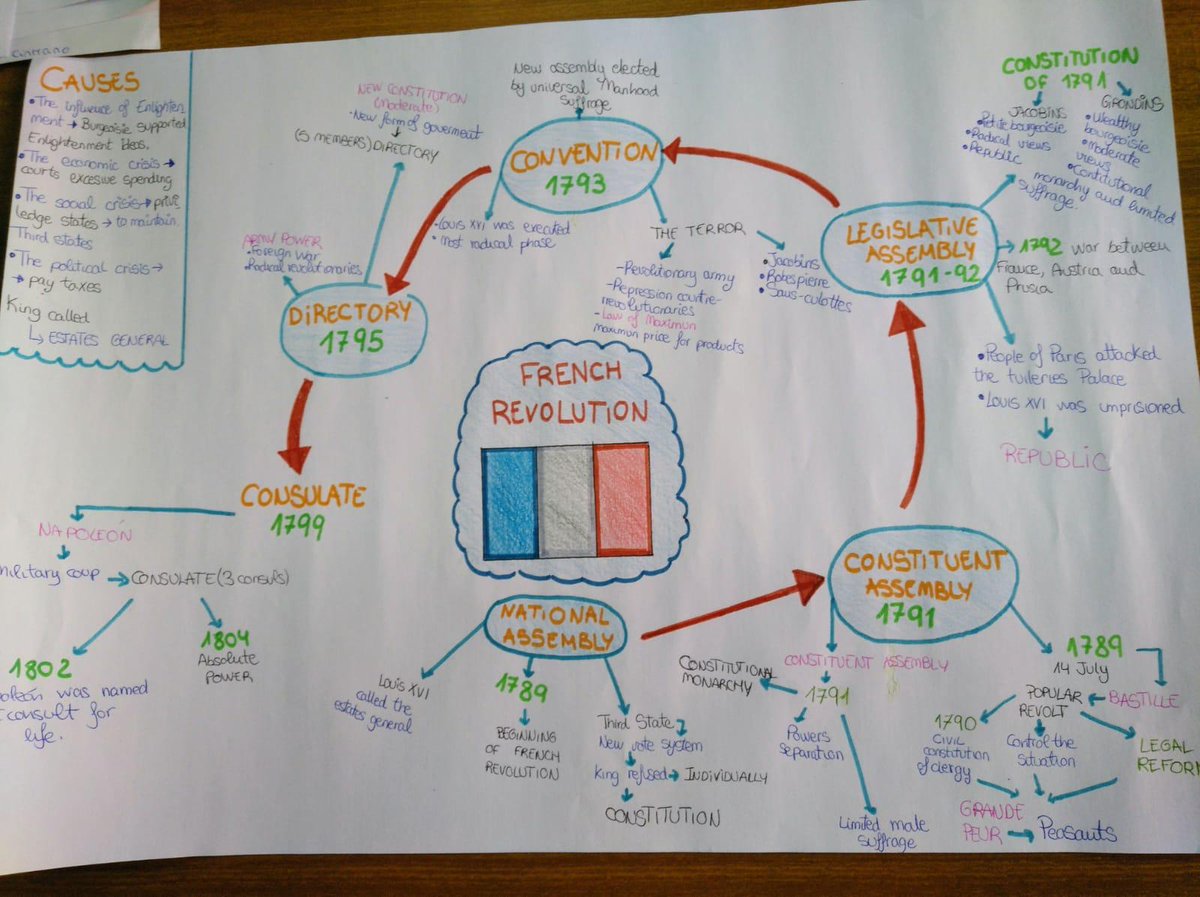 CAUSES
•The influence of Enlighten
ment → Burgeoisie supported
Enlightenment ideas.
•The economic crisis →
courts excesive spending
•The social crisis → privi
ledge states → to maintain
Third states
•The political crisis →
→ pay taxes
King called
↳ ESTATES GENERAL
NEW CONSTITUTION
(moderate)
•New form of goverment
(5 MEMBERS) DIRECTORY
New assembly elected
by universal Manhood
Suffrage
CONVENTION
1793
•Louis XVI was executed
•Most radical phase
THE TERROR
-Revolutionary army
-Repression contre-
revolutionaries
-Law of Maximun
maximun price for products
•Jacobins
•Robespierre
•Sans-culottes
CONSTITUTION
OF 1791
JACOBINS
•Petite bourgeoisie
•Radical views
•Republic
GIRONDINS
•Wealthy
bourgeoisie
•moderate
views
•Contitutional
monarchy and limited
suffrage.
LEGISLATIVE
ASSEMBLY
1791-92
1792 war between
France, Austria and
Prusia
•People of Paris attacked
the tuileries Palace
•Louis XVI was unprisioned
REPUBLIC
ARMY POWER
•Foreign war
•Radical revolutionaries
DIRECTORY
1795
FRENCH
REVOLUTION
CONSULATE
1799
NAPOLEÓN
military coup → CONSULATE (3 consuls)
1802
poleón was named
consult for
life.
1804
Absolute
POWER
NATIONAL
ASSEMBLY
Louis XVI
called the
estates general
1789
BEGINNING
OF FRENCH
REVOLUTION
Third State
New vote system
King refused → INDIVIDUALLY
CONSTITUTION
CONSTITUENT
ASSEMBLY
1791
CONSTITUENT ASSEMBLY
1791
CONSTITUTIONAL
MONARCHY
Powers
separation
Limited male
suffrage
1789
14 July
BASTILLE
POPULAR
REVOLT
1790
CIVIL
constitution
of clergy
Control the
situation
LEGAL
REFOR
GRANDE
PEUR → Peasauts